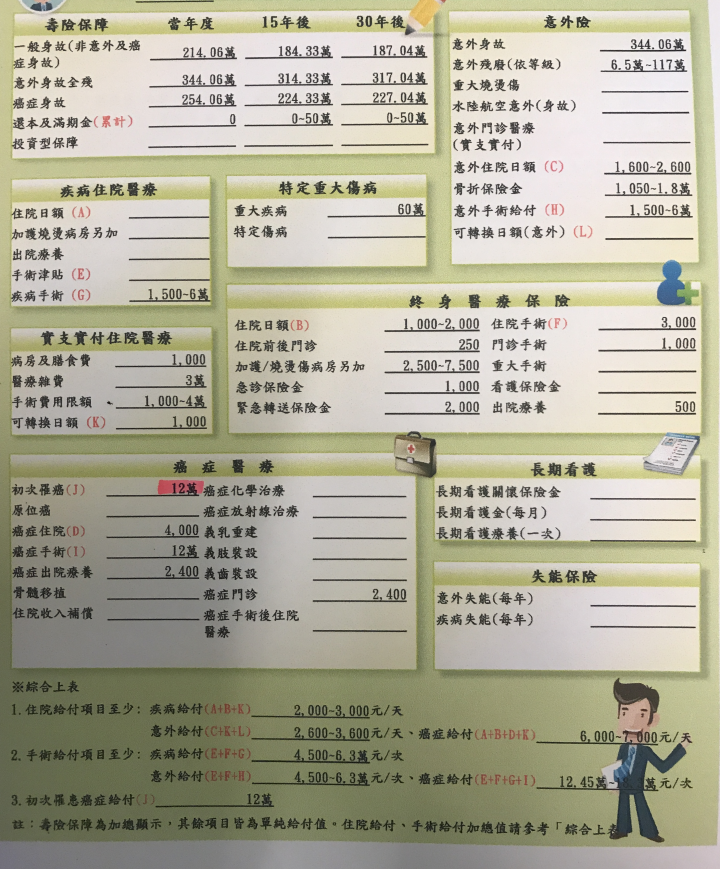 壽險保障 當年度 15年後 30年後
一般身故(非意外及癌症身故) 214.06萬 184.33萬 187.04萬
意外身故全殘 344.06萬 314.33萬 317.04萬
癌症身故 254.06萬 224.33萬 227.04萬
還本及滿期金(累計) 0 0~50萬 0~50萬
投資型保障
意外險
意外身故 344.06萬
意外殘廢(依等級) 6.5萬~117萬
重大燒燙傷
水陸航空意外(身故)
意外門診醫療
(實支實付)
意外住院日額 (C) 1,600~2,600
骨折保險金 1,050~1.8萬
意外手術給付 (H) 1,500~6萬
可轉換日額(意外) (L)
疾病住院醫療
住院日額 (A)
加護燒燙病房另加
出院療養
手術津貼 (E)
疾病手術 (G) 1,500~6萬
特定重大傷病
重大疾病 60萬
特定傷病
實支實付住院醫療
病房及膳食費 1,000
醫療雜費 3萬
手術費用限額 1,000~4萬
可轉換日額 (K) 1,000
終身醫療保險
住院日額(B) 1,000~2,000 住院手術(F) 3,000
住院前後門診 250 門診手術 1,000
加護/燒燙傷病房另加 2,500~7,500 重大手術
急診保險金 1,000 看護保險金
緊急轉送保險金 2,000 出院療養 500
癌症醫療
初次罹癌(J) 12萬 癌症化學治療
原位癌 癌症放射線治療
癌症住院(D) 4,000 義乳重建
癌症手術(I) 12萬 義肢裝設
癌症出院療養 2,400 義齒裝設
骨髓移植 癌症門診 2,400
住院收入補償 癌症手術後住院
醫療
長期看護
長期看護關懷保險金
長期看護金(每月)
長期看護療養(一次)
失能保險
意外失能(每年)
疾病失能(每年)
※綜合上表
1.住院給付項目至少: 疾病給付(A+B+K) 2,000~3,000元/天
意外給付(C+K+L) 2,600~3,600元/天、癌症給付(A+B+D+K) 6,000~7,000元/天
2.手術給付項目至少: 疾病給付(E+F+G) 4,500~6.3萬元/次
意外給付(E+F+H) 4,500~6.3萬元/次、癌症給付(E+F+G+I) 12.45萬~ 萬元/次
3.初次罹患癌症給付(J) 12萬
註：壽險保障為加總顯示，其餘項目皆為單純給付值。住院給付、手術給付加總值請參考「綜合上表